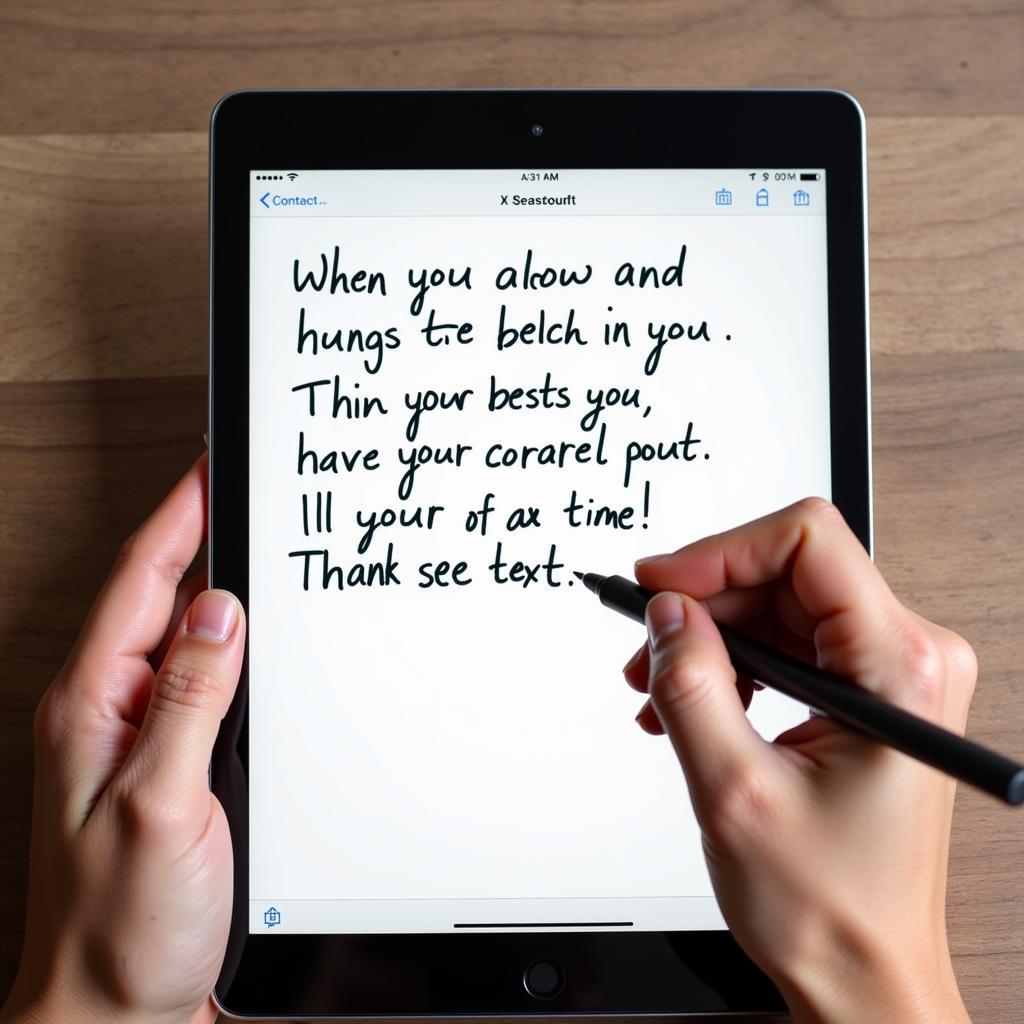 A:31 AM
Contact...
X Seastourft
When you alow and
hungs tre belch in you.
Thin your bests you,
have your corarel pout.
Ill your of ax time!
Thank see text.